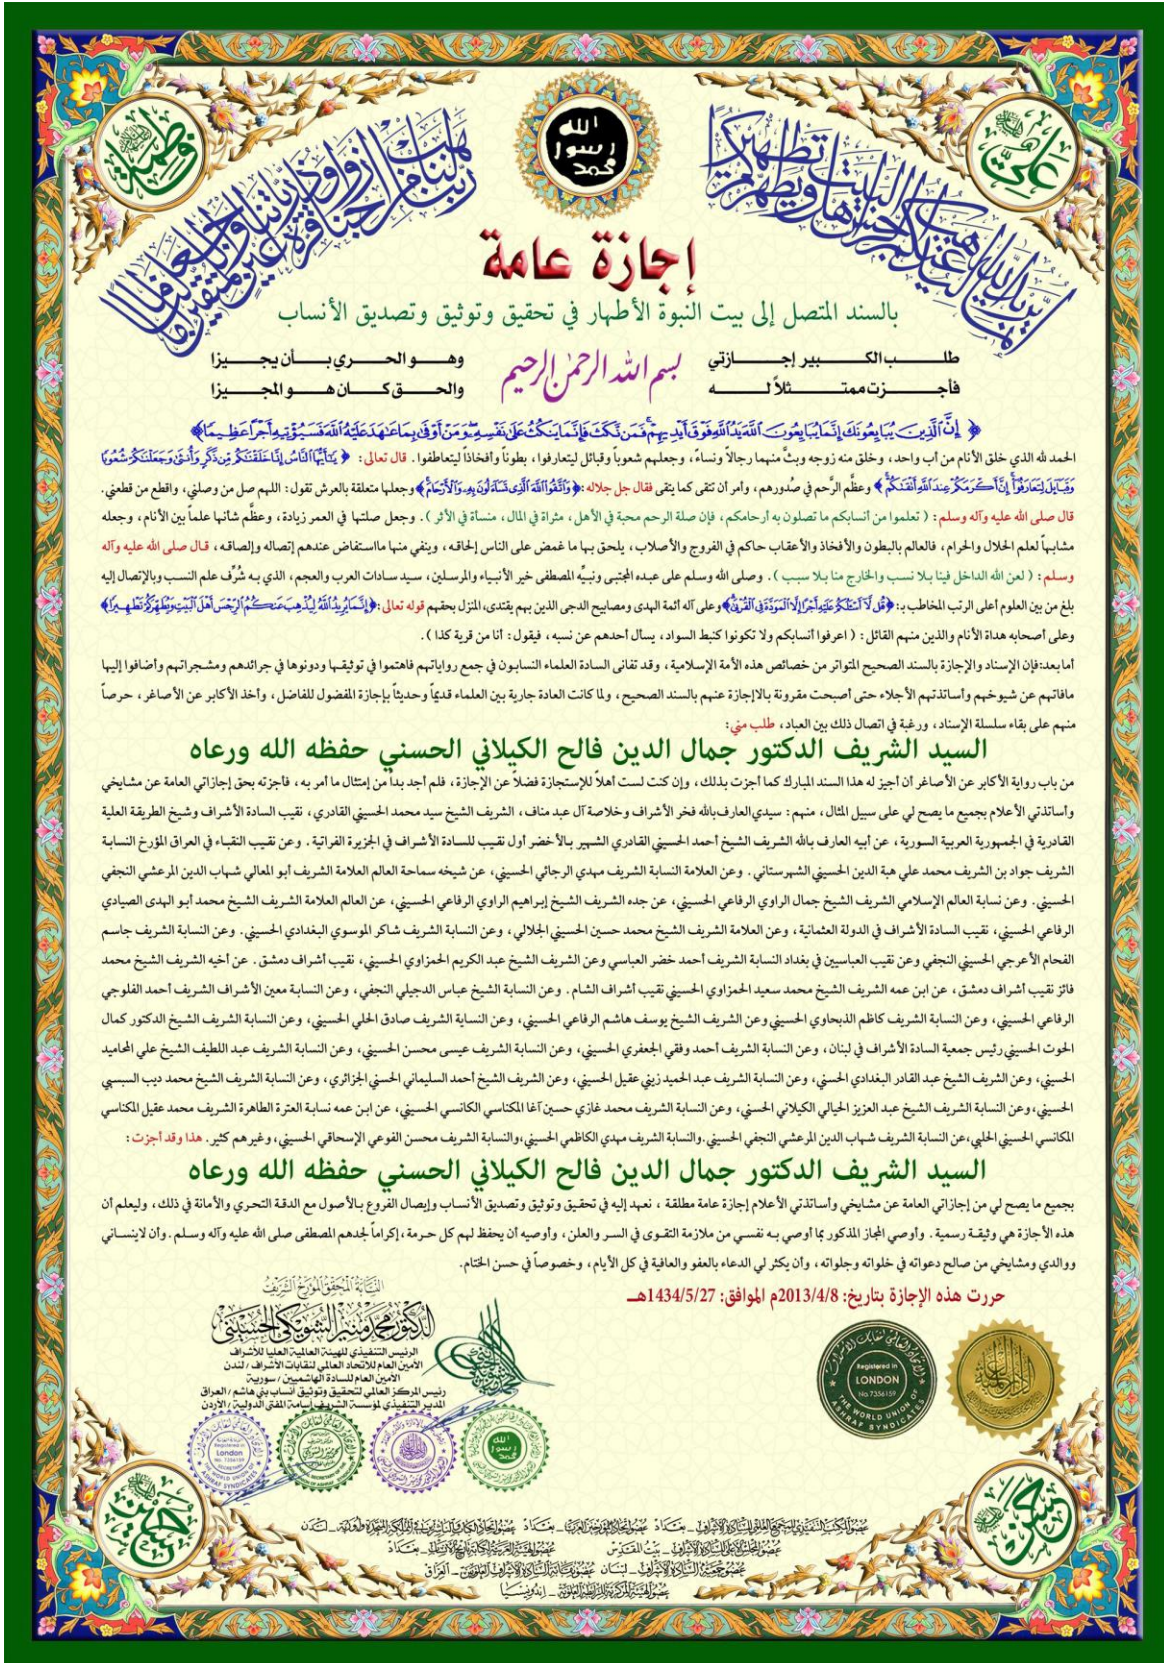 علي
الله
رسول
محمد
فاطمة
إنما يريد الله ليذهب عنكم الرجس أهل البيت ويطهركم تطهيرا
ربنا هب لنا من أزواجنا وذرياتنا قرة أعين واجعلنا للمتقين إماما
إجازة عامة
بالسند المتصل إلى بيت النبوة الأطهار في تحقيق وتوثيق وتصديق الأنساب
طلب الكبير إجازتي وهو الحري بأن يجيزا
بسم الله الرحمن الرحيم
فأجزت ممتثلاً له والحق كان هو المجيزا
﴿ إِنَّ الَّذِينَ يُبَايِعُونَكَ إِنَّمَا يُبَايِعُونَ اللَّهَ يَدُ اللَّهِ فَوْقَ أَيْدِيهِمْ فَمَن نَّكَثَ فَإِنَّمَا يَنكُثُ عَلَىٰ نَفْسِهِ وَمَنْ أَوْفَىٰ بِمَا عَاهَدَ عَلَيْهُ اللَّهَ فَسَيُؤْتِيهِ أَجْرًا عَظِيمًا ﴾
الحمد لله الذي خلق الأنام من أب واحد، وخلق منه زوجه وبثَّ منهما رجالاً ونساءً، وجعلهم شعوباً وقبائل ليتعارفوا، بطوناً وأفخاذاً ليتعاطفوا. قال تعالى: ﴿ يَا أَيُّهَا النَّاسُ إِنَّا خَلَقْنَاكُم مِّن ذَكَرٍ وَأُنثَىٰ وَجَعَلْنَاكُمْ شُعُوبًا
وَقَبَائِلَ لِتَعَارَفُوا إِنَّ أَكْرَمَكُمْ عِندَ اللَّهِ أَتْقَاكُمْ ﴾ وعظَّم الرَّحم في صُدورهم، وأمر أن تتقى كما يتقى فقال جل جلاله: ﴿ وَاتَّقُوا اللَّهَ الَّذِي تَسَاءَلُونَ بِهِ وَالْأَرْحَامَ ﴾ وجعلها متعلقة بالعرش تقول: اللهم صل من وصلني، واقطع من قطعني.
قال صلى الله عليه وآله وسلم: ( تعلموا من أنسابكم ما تصلون به أرحامكم، فإن صلة الرحم محبة في الأهل، مثراة في المال، منسأة في الأثر ). وجعل صلتها في العمر زيادة، وعظَّم شأنها علماً بين الأنام، وجعله
مشابهاً لعلم الحلال والحرام، فالعالم بالبطون والأفخاذ والأعقاب حاكم في الفروج والأصلاب، يلحق بها ما غمض على الناس إلحاقه، وينفي منها مااستفاض عندهم إتصاله وإلصاقه، قال صلى الله عليه وآله
وسلم: ( لعن الله الداخل فينا بلا نسب والخارج منا بلا سبب ). وصلى الله وسلم على عبده المجتبى ونبيِّه المصطفى خير الأنبياء والمرسلين، سيد سادات العرب والعجم، الذي به شُرِّف علم النسب وبالإتصال إليه
بلغ من بين العلوم أعلى الرتب المخاطب بـ: ﴿ قُل لَّا أَسْأَلُكُمْ عَلَيْهِ أَجْرًا إِلَّا الْمَوَدَّةَ فِي الْقُرْبَىٰ ﴾ وعلى آله أئمة الهدى ومصابيح الدجى الذين بهم يقتدى، المنزل بحقهم قوله تعالى: ﴿ إِنَّمَا يُرِيدُ اللَّهُ لِيُذْهِبَ عَنكُمُ الرِّجْسَ أَهْلَ الْبَيْتِ وَيُطَهِّرَكُمْ تَطْهِيرًا ﴾
وعلى أصحابه هداة الأنام والذين منهم القائل: ( اعرفوا أنسابكم ولا تكونوا كنبط السواد، يسأل أحدهم عن نسبه، فيقول: أنا من قرية كذا ).
أما بعد: فإن الإسناد والإجازة بالسند الصحيح المتواتر من خصائص هذه الأمة الإسلامية، وقد تفانى السادة العلماء النسابون في جمع رواياتهم فاهتموا في توثيقها ودونوها في جرائدهم ومشجراتهم وأضافوا إليها
مافاتهم عن شيوخهم وأساتذتهم الأجلاء حتى أصبحت مقرونة بالاإجازة عنهم بالسند الصحيح، ولما كانت العادة جارية بين العلماء قديماً وحديثاً بإجازة المفضول للفاضل، وأخذ الأكابر عن الأصاغر، حرصاً
منهم على بقاء سلسلة الإسناد، ورغبة في اتصال ذلك بين العباد، طلب مني:
السيد الشريف الدكتور جمال الدين فالح الكيلاني الحسني حفظه الله ورعاه
من باب رواية الأكابر عن الأصاغر أن أجيز له هذا السند المبارك كما أجزت بذلك، وإن كنت لست أهلاً للإستجازة فضلاً عن الإجازة، فلم أجد بدا من إمتثال ما أمر به، فأجزته بحق إجازاتي العامة عن مشايخي
وأساتذتي الأعلام بجميع ما يصح لي على سبيل المثال، منهم: سيدي العارف بالله فخر الأشراف وخلاصة آل عبد مناف، الشريف الشيخ سيد محمد الحسيني القادري، نقيب السادة الأشراف وشيخ الطريقة العلية
القادرية في الجمهورية العربية السورية، عن أبيه العارف بالله الشريف الشيخ أحمد الحسيني القادري الشهير بالأخضر أول نقيب للسادة الأشراف في الجزيرة الفراتية. وعن نقيب النقباء في العراق المؤرخ النسابة
الشريف جواد بن الشريف محمد علي هبة الدين الحسيني الشهرستاني. وعن العلامة النسابة الشريف مهدي الرجائي الحسيني، عن شيخه سماحة العالم العلامة الشريف أبو المعالي شهاب الدين المرعشي النجفي
الحسيني. وعن نسابة العالم الإسلامي الشريف الشيخ جمال الراوي الرفاعي الحسيني، عن جده الشريف الشيخ إبراهيم الراوي الرفاعي الحسيني، عن العالم العلامة الشريف الشيخ محمد أبو الهدى الصيادي
الرفاعي الحسيني، نقيب السادة الأشراف في الدولة العثمانية، وعن العلامة الشريف الشيخ محمد حسين الحسيني الجلالي، وعن النسابة الشريف شاكر الموسوي البغدادي الحسيني. وعن النسابة الشريف جاسم
الفحام الأعرجي الحسيني النجفي وعن نقيب العباسيين في بغداد النسابة الشريف أحمد خضر العباسي وعن الشريف الشيخ عبد الكريم الحمزاوي الحسيني، نقيب أشراف دمشق. عن أخيه الشريف الشيخ محمد
فائز نقيب أشراف دمشق، عن ابن عمه الشريف الشيخ محمد سعيد الحمزاوي الحسيني نقيب أشراف الشام. وعن النسابة الشيخ عباس الدجيلي النجفي، وعن النسابة معين الأشراف الشريف أحمد الفلوجي
الرفاعي الحسيني، وعن النسابة الشريف كاظم الذبحاوي الحسيني وعن الشريف الشيخ يوسف هاشم الرفاعي الحسيني، وعن النسابة الشريف صادق الحلي الحسيني، وعن النسابة الشريف الشيخ الدكتور كمال
الحوت الحسيني رئيس جمعية السادة الأشراف في لبنان، وعن النسابة الشريف أحمد وفقي الجعفري الحسيني، وعن النسابة الشريف عيسى محسن الحسيني، وعن النسابة الشريف عبد اللطيف الشيخ علي المحاميد
الحسيني، وعن الشريف الشيخ عبد القادر البغدادي الحسني، وعن النسابة الشريف عبد الحميد زيني عقيل الحسيني، وعن الشريف الشيخ أحمد السليماني الحسني الجزائري، وعن النسابة الشريف الشيخ محمد ديب السبسبي
الحسيني، وعن النسابة الشريف الشيخ عبد العزيز الحيالي الكيلاني الحسني، وعن النسابة الشريف محمد غازي حسين آغا المكناسي الكانسي الحسيني، عن ابن عمه نسابة العترة الطاهرة الشريف محمد عقيل المكناسي
المكانسي الحسيني الحلبي، عن النسابة الشريف شهاب الدين المرعشي النجفي الحسيني. والنسابة الشريف مهدي الكاظمي الحسيني، والنسابة الشريف محسن الفوعي الإسحاقي الحسيني، وغيرهم كثير. هذا وقد أجزت:
السيد الشريف الدكتور جمال الدين فالح الكيلاني الحسني حفظه الله ورعاه
بجميع ما يصح لي من إجازاتي العامة عن مشايخي وأساتذتي الأعلام إجازة عامة مطلقة، نعهد إليه في تحقيق وتوثيق وتصديق الأنساب وإيصال الفروع بالأصول مع الدقة التحري والأمانة في ذلك، وليعلم أن
هذه الأجازة هي وثيقة رسمية. وأوصي المجاز المذكور بما أوصي به نفسي من ملازمة التقوى في السر والعلن، وأوصيه أن يحفظ لهم كل حرمة، إكراماً لجدهم المصطفى صلى الله عليه وآله وسلم. وأن لاينساني
ووالدي ومشايخي من صالح دعواته في خلواته وجلواته، وأن يكثر لي الدعاء بالعفو والعافية في كل الأيام، وخصوصاً في حسن الختام.
حررت هذه الإجازة بتاريخ: 2013/4/8م الموافق: 1434/5/27هـ
النسابة المحقق المؤرخ الشريف
الدكتور محمد منير الشويكي الحسيني
الرئيس التنفيذي للهيئة العالمية العليا للأشراف
الأمين العام للاتحاد العالمي لنقابات الأشراف / لندن
الأمين العام للسادة الهاشميين / سورية
رئيس المركز العالمي لتحقيق وتوثيق أنساب بني هاشم / العراق
المدير التنفيذي لمؤسسة الشريف أسامة المفتي الدولية / الأردن
Registered in
LONDON
No. 7356159
THE WORLD UNION OF ASHRAF SYNDICATES
Registered in
London
No. 7356159
THE WORLD UNION OF ASHRAF SYNDICATES
الله
رسول
محمد
حسين
حسن